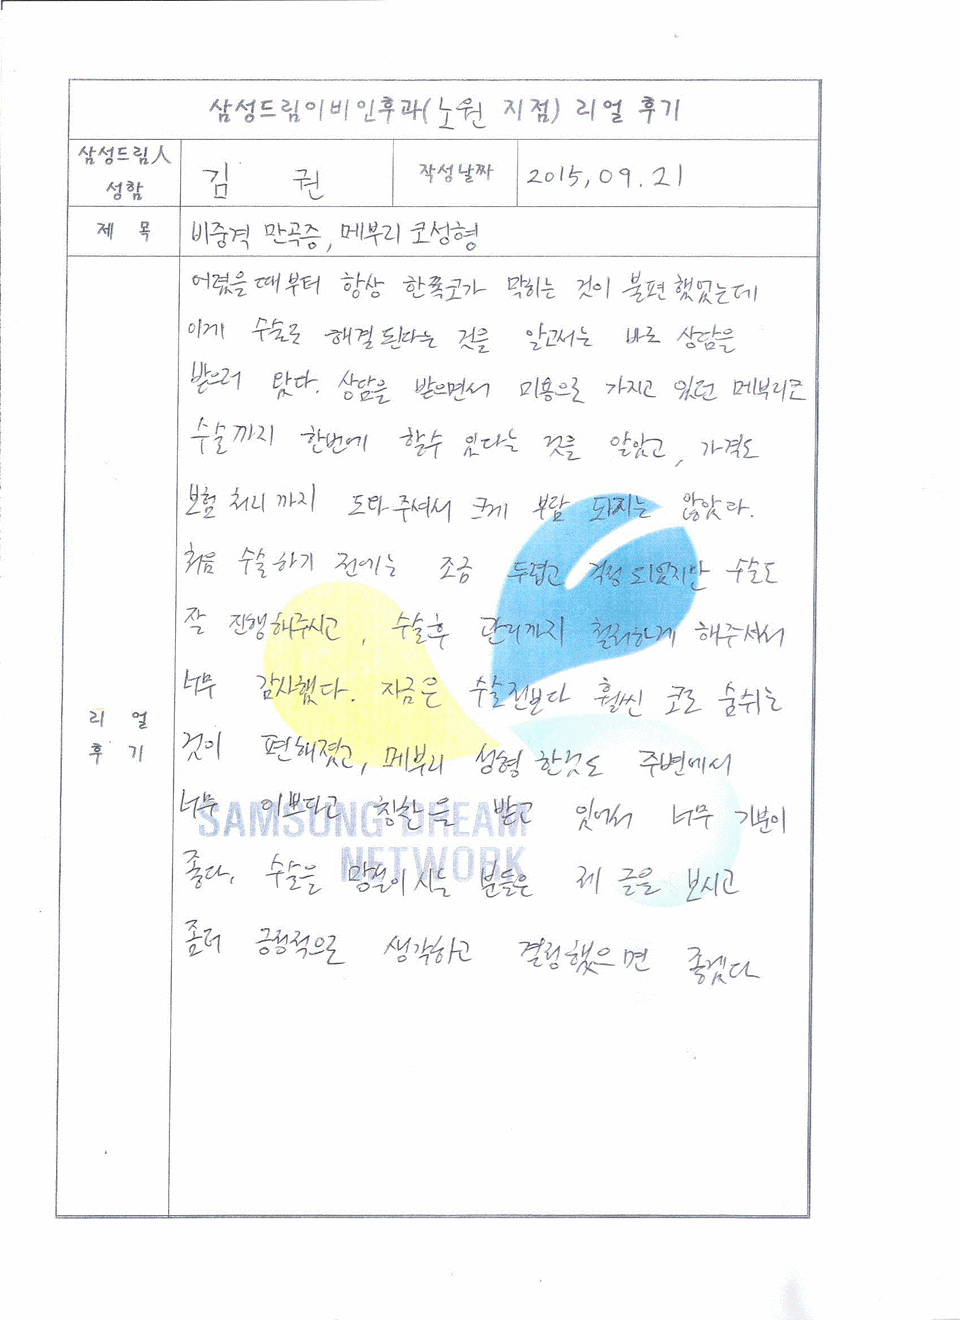 삼성드림이비인후과(노원 지점) 리얼 후기
삼성드림人 성함
김 권
작성날짜
2015, 09. 21
제 목
비중격 만곡증, 메부리 코성형
리 얼 후 기
어렸을때부터 항상 한쪽코가 막히는 것이 불편했었는데
이게 수술로 해결된다는 것을 알고서는 바로 상담을
받으러 왔다. 상담을 받으면서 미용으로 가지고 있던 메부리코
수술까지 한번에 할수 있다는 것을 알았고, 가격도
보험 처리까지 도와주셔서 크게 부담 되지는 않았다.
처음 수술하기 전에는 조금 두렵고 걱정되었지만 수술도
잘 진행해주시고, 수술후 관리까지 철저하게 해주셔서
너무 감사했다. 지금은 수술전보다 훨씬 코로 숨쉬는
것이 편해졌고, 메부리 성형 한것도 주변에서
너무 이쁘다고 칭찬을 받고 있어서 너무 기분이
좋다. 수술을 망설이시는 분들은 제 글을 보시고
좀더 긍정적으로 생각하고 결정했으면 좋겠다
SAMSUNG DREAM
NETWORK